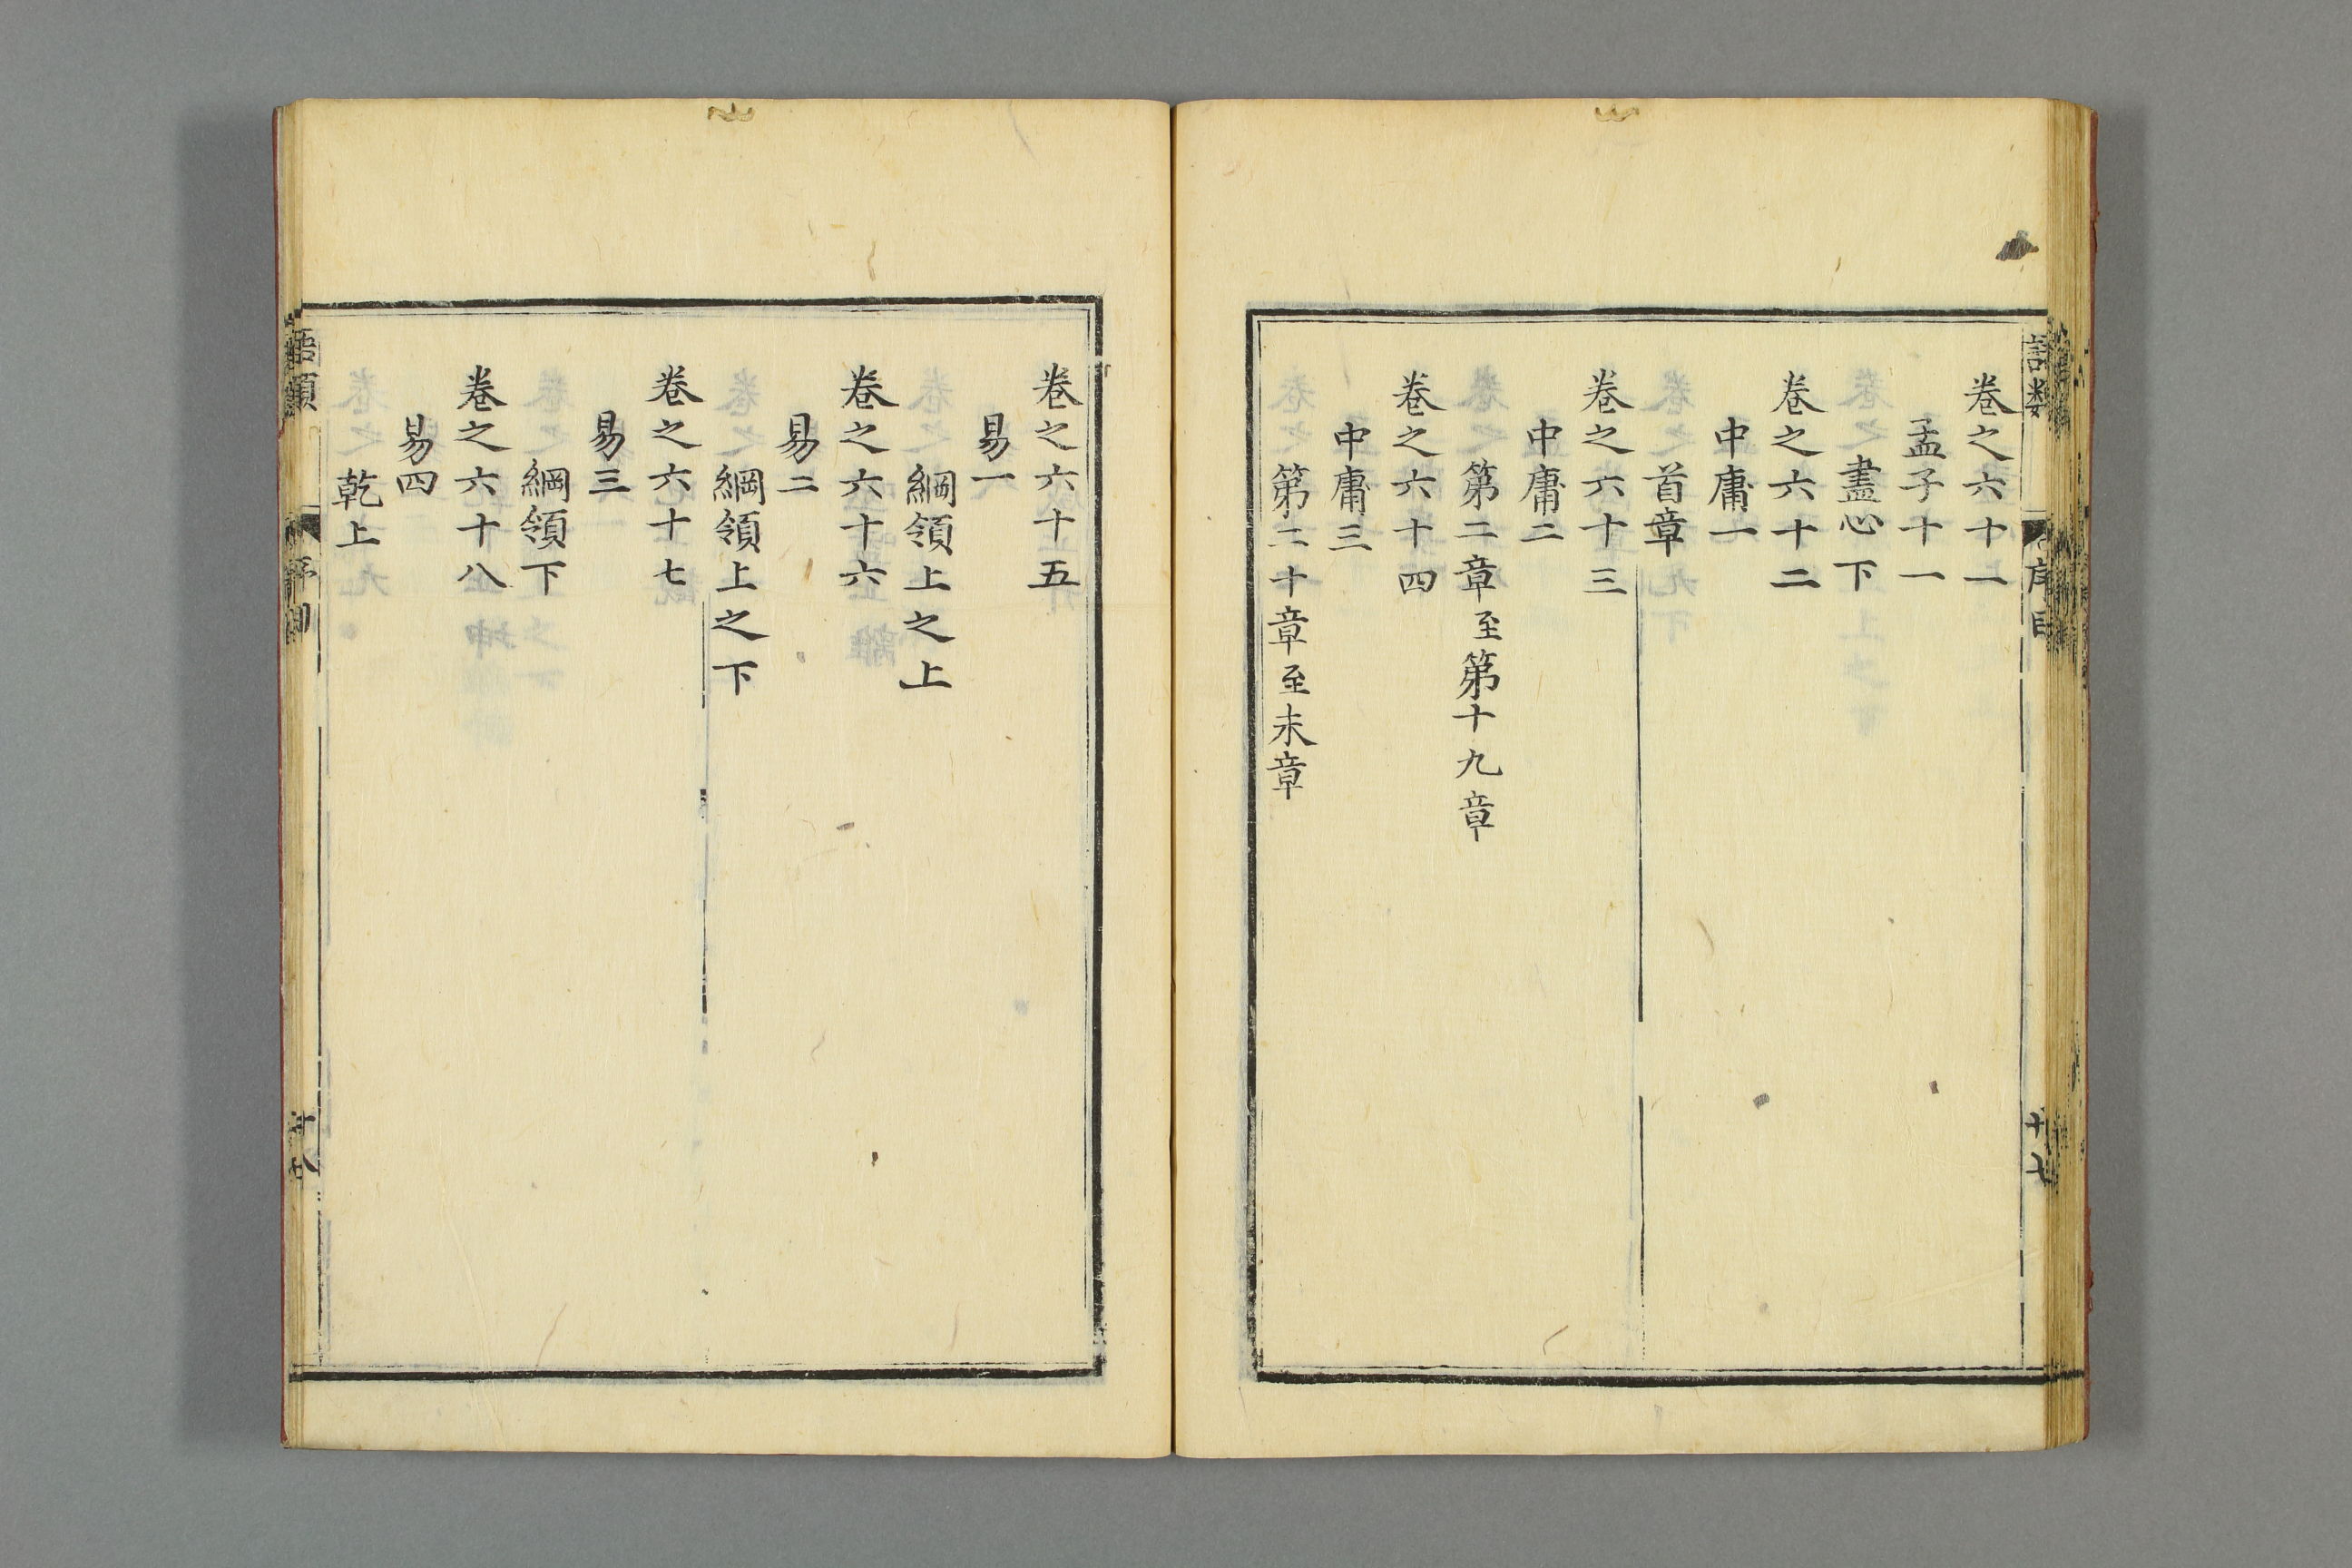 卷之六十一
孟子十一
盡心下
卷之六十二
中庸一
首章
卷之六十三
中庸二
第二章至第十九章
卷之六十四
中庸三
第二十章至末章
卷之六十五
易一
綱領上之上
卷之六十六
易二
綱領上之下
卷之六十七
易三
綱領下
卷之六十八
易四
乾上